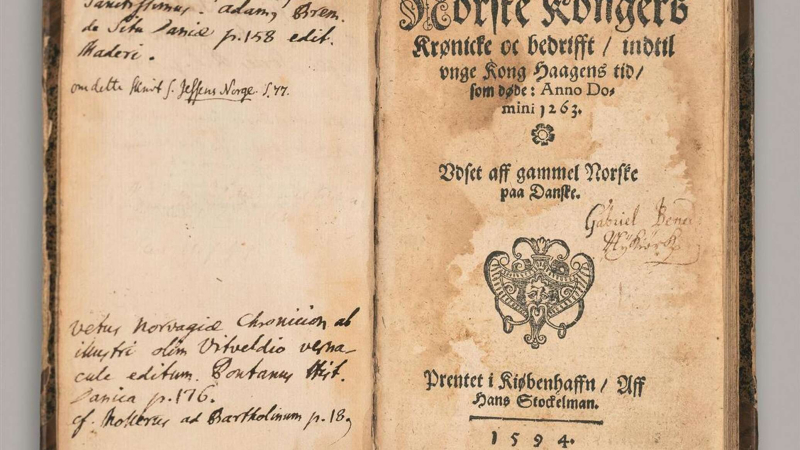 Adam, Brem.
de Situ Daniæ p.158 edit.
Maderi.
om dette skrift s. Jessens Norge. S. 77.
vetus Norvagiæ Chronicion ab
illustri olim Vitveldio verna-
cule editum. Pontanus Hist.
Danica p. 176.
cf. Mollerus ad Bartholinum p. 18,
Norske Kongers
Krønicke oc bedrifft / indtil
vnge Kong Haagens tid /
som døde: Anno Do-
mini 1263.
Vdset aff gammel Norske
paa Danske.
Gabriel
Prentet i Kiøbenhaffn / Aff
Hans Stockelman.
1594.